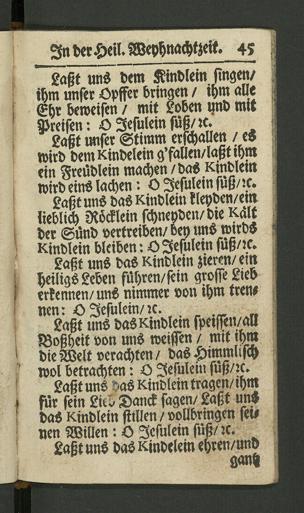 In der Heil. Weyhnachtzeit. 45
Laßt uns dem Kindlein singen/
ihm unser Opffer bringen / ihm alle
Ehr beweisen / mit Loben und mit
Preisen: O Jesulein süß/ꝛc.
Laßt unser Stimm erschallen / es
wird dem Kindelein g'fallen/laßt ihm
ein Freüdlein machen / das Kindlein
wird eins lachen: O Jesulein süß/ꝛc.
Laßt uns das Kindlein kleyden/ein
lieblich Röcklein schneyden/die Kält
der Sünd vertreiben/bey uns wirds
Kindlein bleiben: O Jesulein süß/ꝛc.
Laßt uns das Kindlein zieren/ein
heiligs Leben führen/sein grosse Lieb
erkennen/uns nimmer von ihm tren-
nen: O Jesulein/ꝛc.
Laßt uns das Kindlein speissen/all
Boßheit von uns weissen / mit ihm
die Welt verachten / das Himmlisch
wol betrachten: O Jesulein süß/ꝛc.
Laßt uns das Kindlein tragen/ihm
für sein Lieb Danck sagen/ Laßt uns
das Kindlein stillen / vollbringen sei-
nen Willen: O Jesulein süß/ꝛc.
Laßt uns das Kindelein ehren/und
gantz